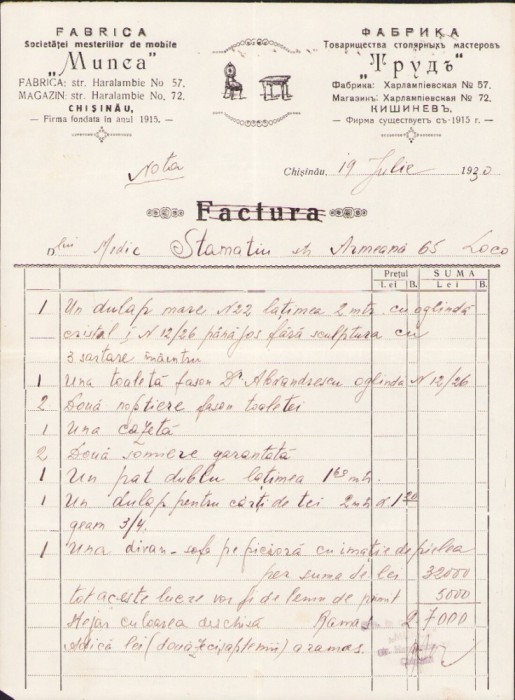 FABRICA
Societăței mesteriilor de mobile
„Munca"
FABRICA: str. Haralambie No 57,
MAGAZIN: str. Haralambie No, 72,
CHIȘINĂU,
— Firma fondata in anul 1915. —
ФАБРИКА
Товарищества столярныхъ мастеровъ
„Трудъ"
Фабрика: Харлампіевская № 57,
Магазинъ: Харлампіевская № 72,
КИШИНЕВЪ,
— Фирма существуетъ съ 1915 г. —
Nota
Chișinău, 19 Iulie 1930
Factura
Dlui Medic Stamatiu str Armeană 65 Loco
Prețul SUMA
Lei B. Lei B.
1 Un dulap mare N 22 lațimea 2 mtr. cu oglindă
cristal; N 12/26 până jos fără sculptura cu
3 sartare înăuntru
1 Una toaletă fason Dr Alexandrescu oglinda N 12/26
2 Două noptiere fason toaletei
1 Una cazetă
2 Două somiere garantată
1 Un pat dublu lațimea 1 mtr.
1 Un dulap pentru cărți de tei 2 mtr. 1.20
geam 3/4.
1 Una divan-sofa pe picioră cu imație de pielea
per suma de lei 32000
tot aceste lucre vor fi de lemn de 5000
culoarea deschisă Ramas 27000
Adică lei (douăzeci șaptemii) a ramas.